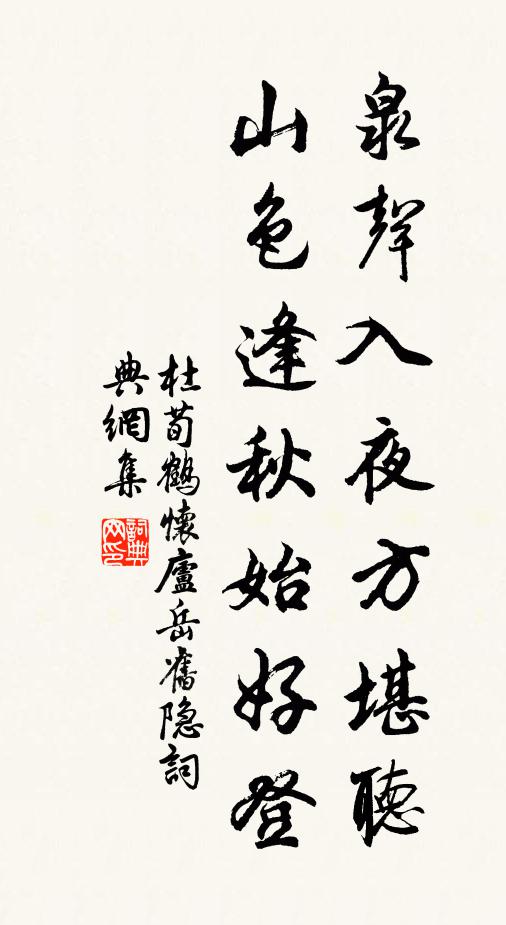 泉聲入夜方堪聽
山色逢秋始好登
杜荀鶴懷廬岳舊隱詞
典網集
詞典网印